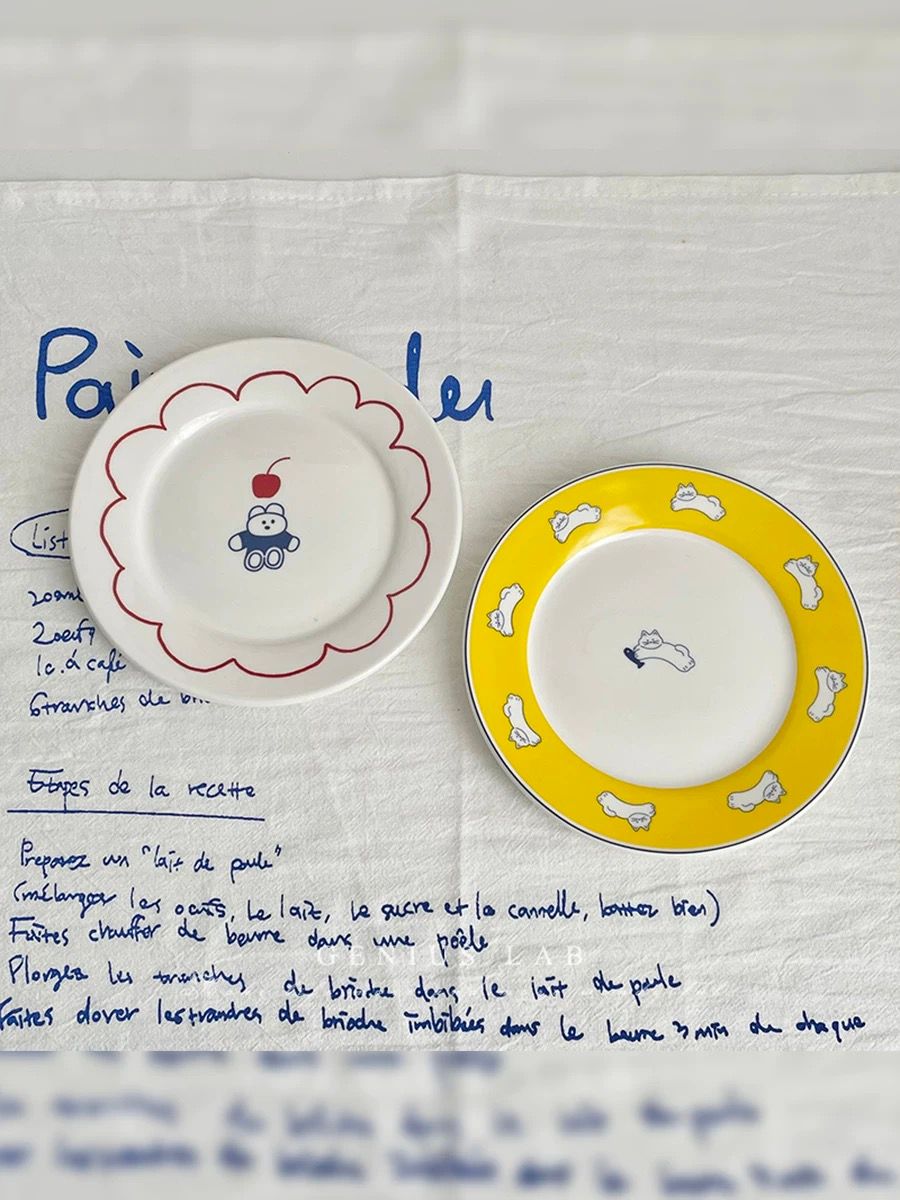 Pai
List
200ml
2oeufs
1c.à café
6tranches de bri
Etapes de la recette
Préparez un "lait de poule"
(mélanger les oeufs, Le lait, le sucre et la cannelle, battez bien)
Faites chauffer de beurre dans une poêle
Plongez les tranches de brioche dans le lait de poule
Faites dorer lestranches de brioche imbibées dans le beurre 3 min du chaque
GENIUS LAB